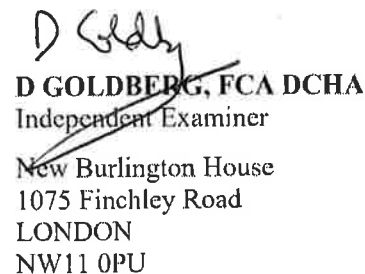 D Goldberg
D GOLDBERG, FCA DCHA
Independent Examiner
New Burlington House
1075 Finchley Road
LONDON
NW11 0PU